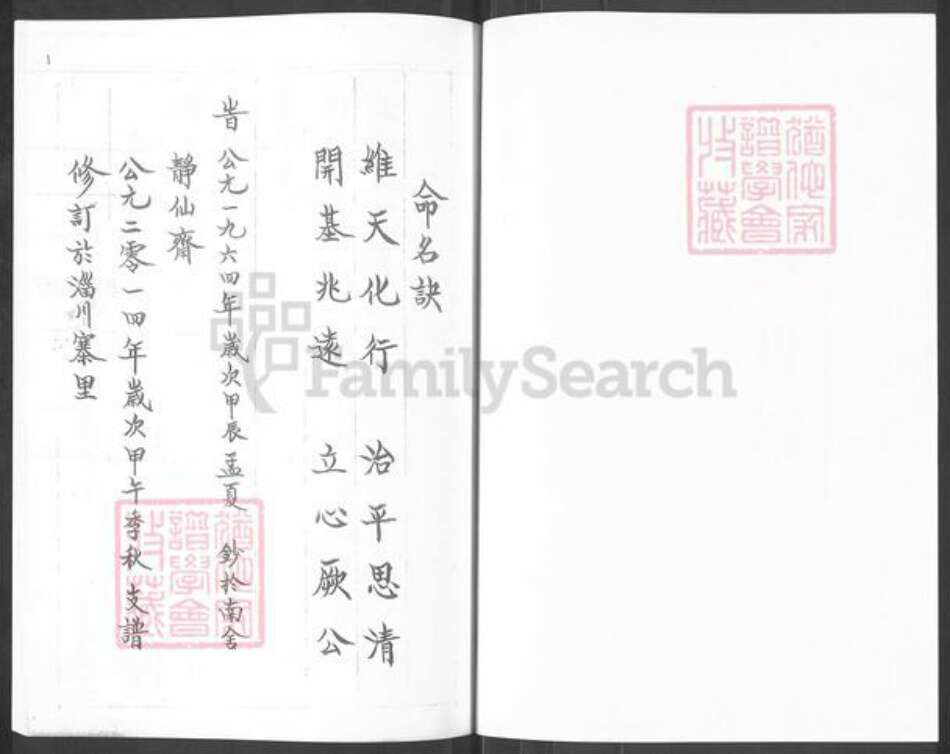 命名訣
維天化行 治平思清
開基兆遠 立心厥公
旹 公元一九六四年歲次甲辰孟夏 鈔於南舍
靜仙齋
公元二零一四年歲次甲午季秋 支譜
修訂於淄川寨里
1
猶他家
譜學會
收藏
猶他家
譜學會
收藏
FamilySearch